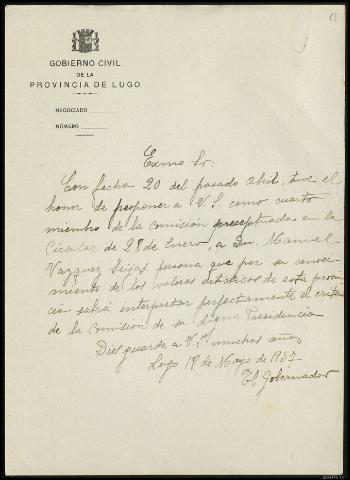 13
GOBIERNO CIVIL
DE LA
PROVINCIA DE LUGO
NEGOCIADO
NÚMERO
Exmo Sr:
Con fecha 20 del pasado Abril, tuve el
honor de proponer a V.S. como cuarto
miembro de la Comisión preceptuada en la
Circular de 28 de Enero, a Dn. Manuel
Vazquez Seijas, persona que por su conoci-
miento de los valores artísticos de esta provin
cia sabrá interpretar perfectamente el criterio
de la Comisión de su digna Presidencia
Dios guarde a V.S muchos años
Lugo 19 de Mayo de 1937
El Gobernador